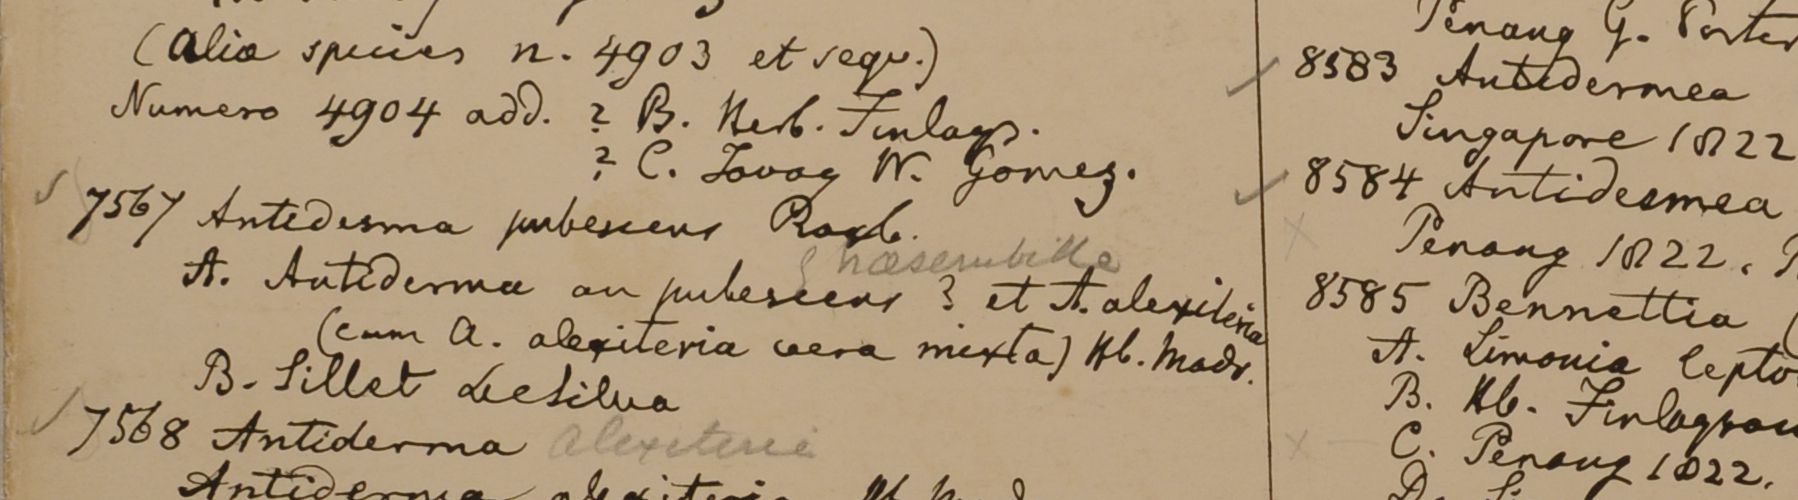 (Alia species n. 4903 et sequ.)
Numero 4904 add. ? B. Herb. Finlays.
? C. Tavoy W. Gomez.
7567 Antidesma pubescens Roxb.
A. Antidesma an pubescens ? et A. alexiteria
(cum A. alexiteria vera mixta) Hb. Madr.
B. Sillet DeSilva
7568 Antidesma alexiteria
Antidesma alexiteria Hb. Mad
Penang G. Porter
8583 Antidesmea
Singapore 1822
8584 Antidesmea
Penang 1822.
8585 Bennettia (
A. Limonia lepto
B. Hb. Finlayson
C. Penang 1822.